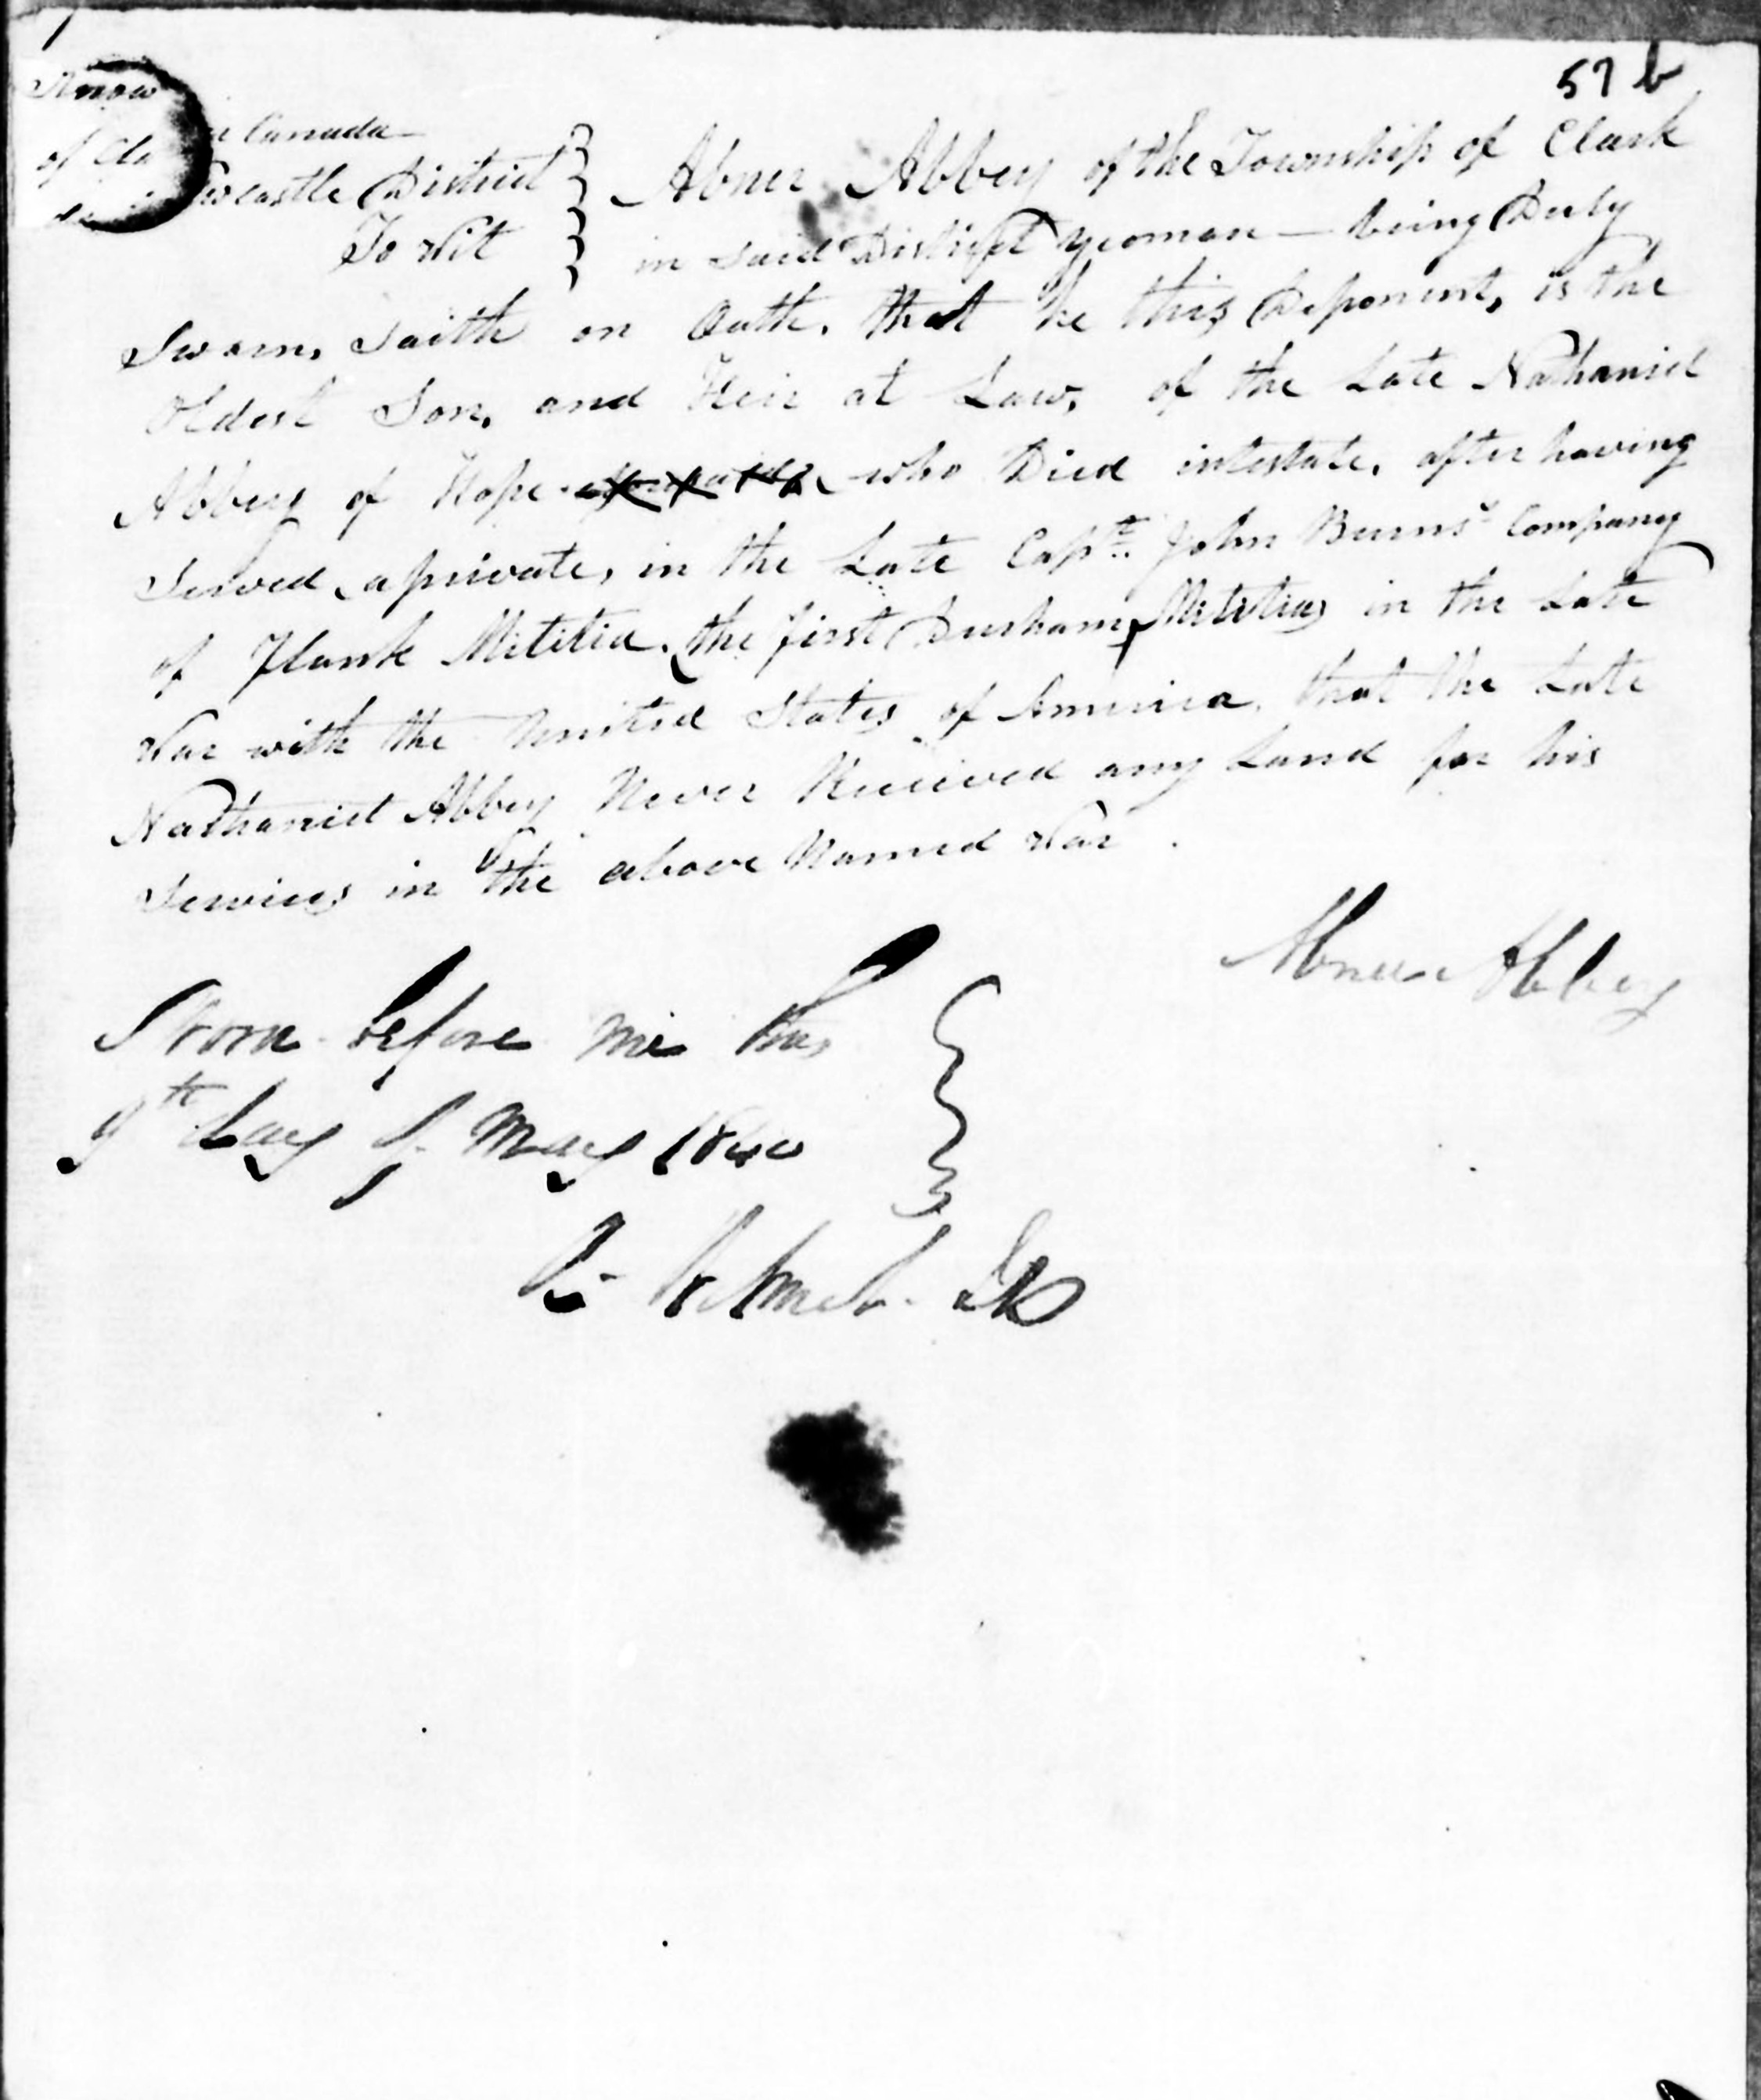 57 b
Know
of Cla
Canada
castle District
To Wit
Abner Abbey of the Township of Clark
in said District Yeoman — being Duly
Sworn, Saith on Oath, that he this Deponent, is the
Oldest Son, and Heir at Law, of the Late Nathaniel
Abbey of Hope who Died intestate, after having
Served a private, in the Late Capt. John Burns' Company
of Flank Militia, the first Durham Militia, in the Late
War with the United States of America, that the Late
Nathaniel Abbey Never Received any Land for his
Services in the above Named War.
Abner Abbey
Sworn before me this
9th day of May 1840